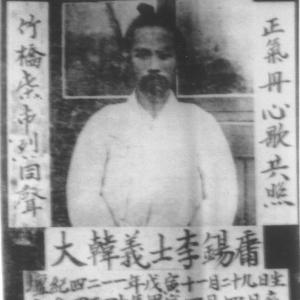 正氣丹心歌共照
竹橋柴市烈同聲
大韓義士李錫庸
檀紀四二一一年戊寅十一月二十九日生